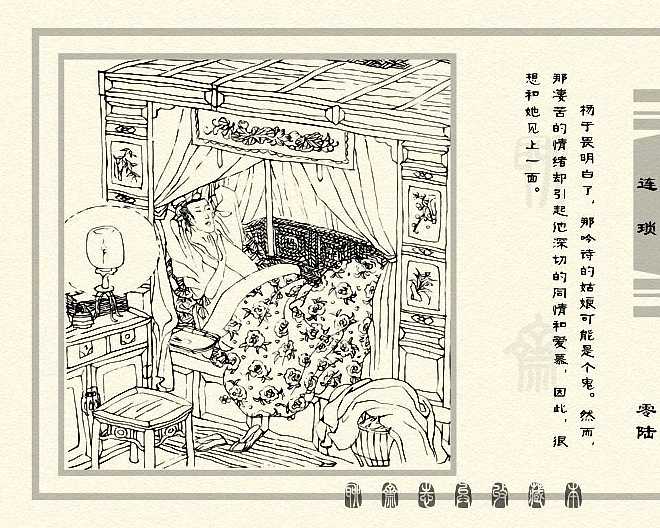 杨于畏明白了，那吟诗的姑娘可能是个鬼。然而，
那凄苦的情绪却引起他深切的同情和爱慕，因此，很
想和她见上一面。
连琐
零陆
聊斋志异收藏本